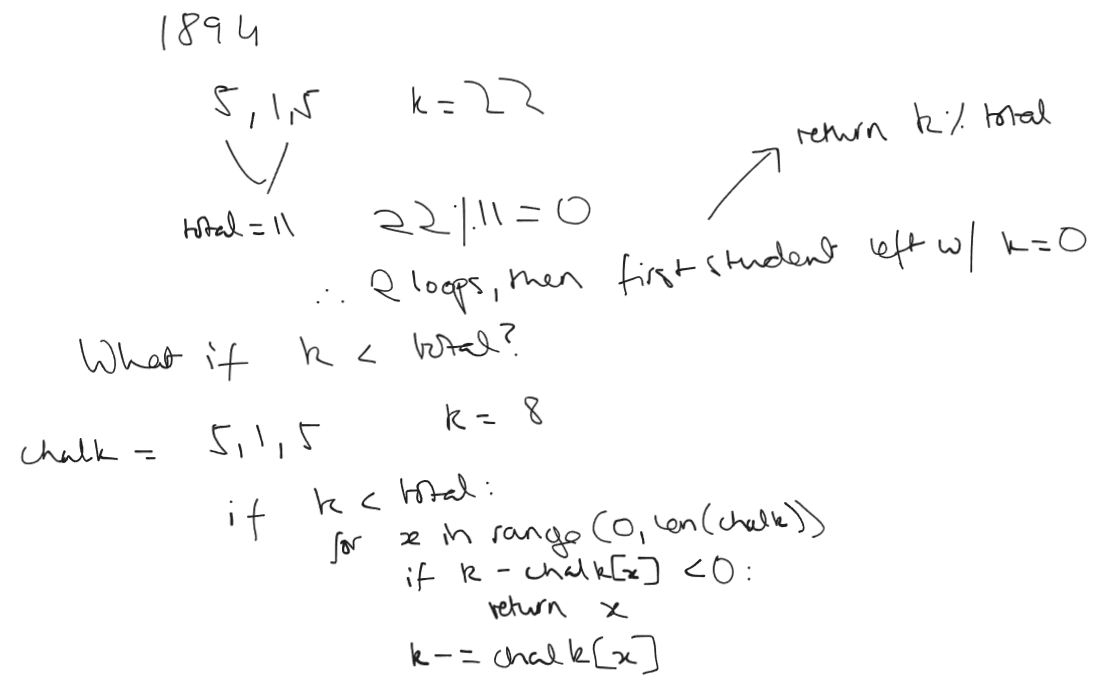 1894
5, 1, 5 k = 22
return k % total
total = 11 22 % 11 = 0
∴ 2 loops, then first student left w/ k=0
What if k < total?
k = 8
chalk = 5, 1, 5
if k < total:
for x in range (0, len(chalk))
if k - chalk[x] < 0:
return x
k -= chalk[x]